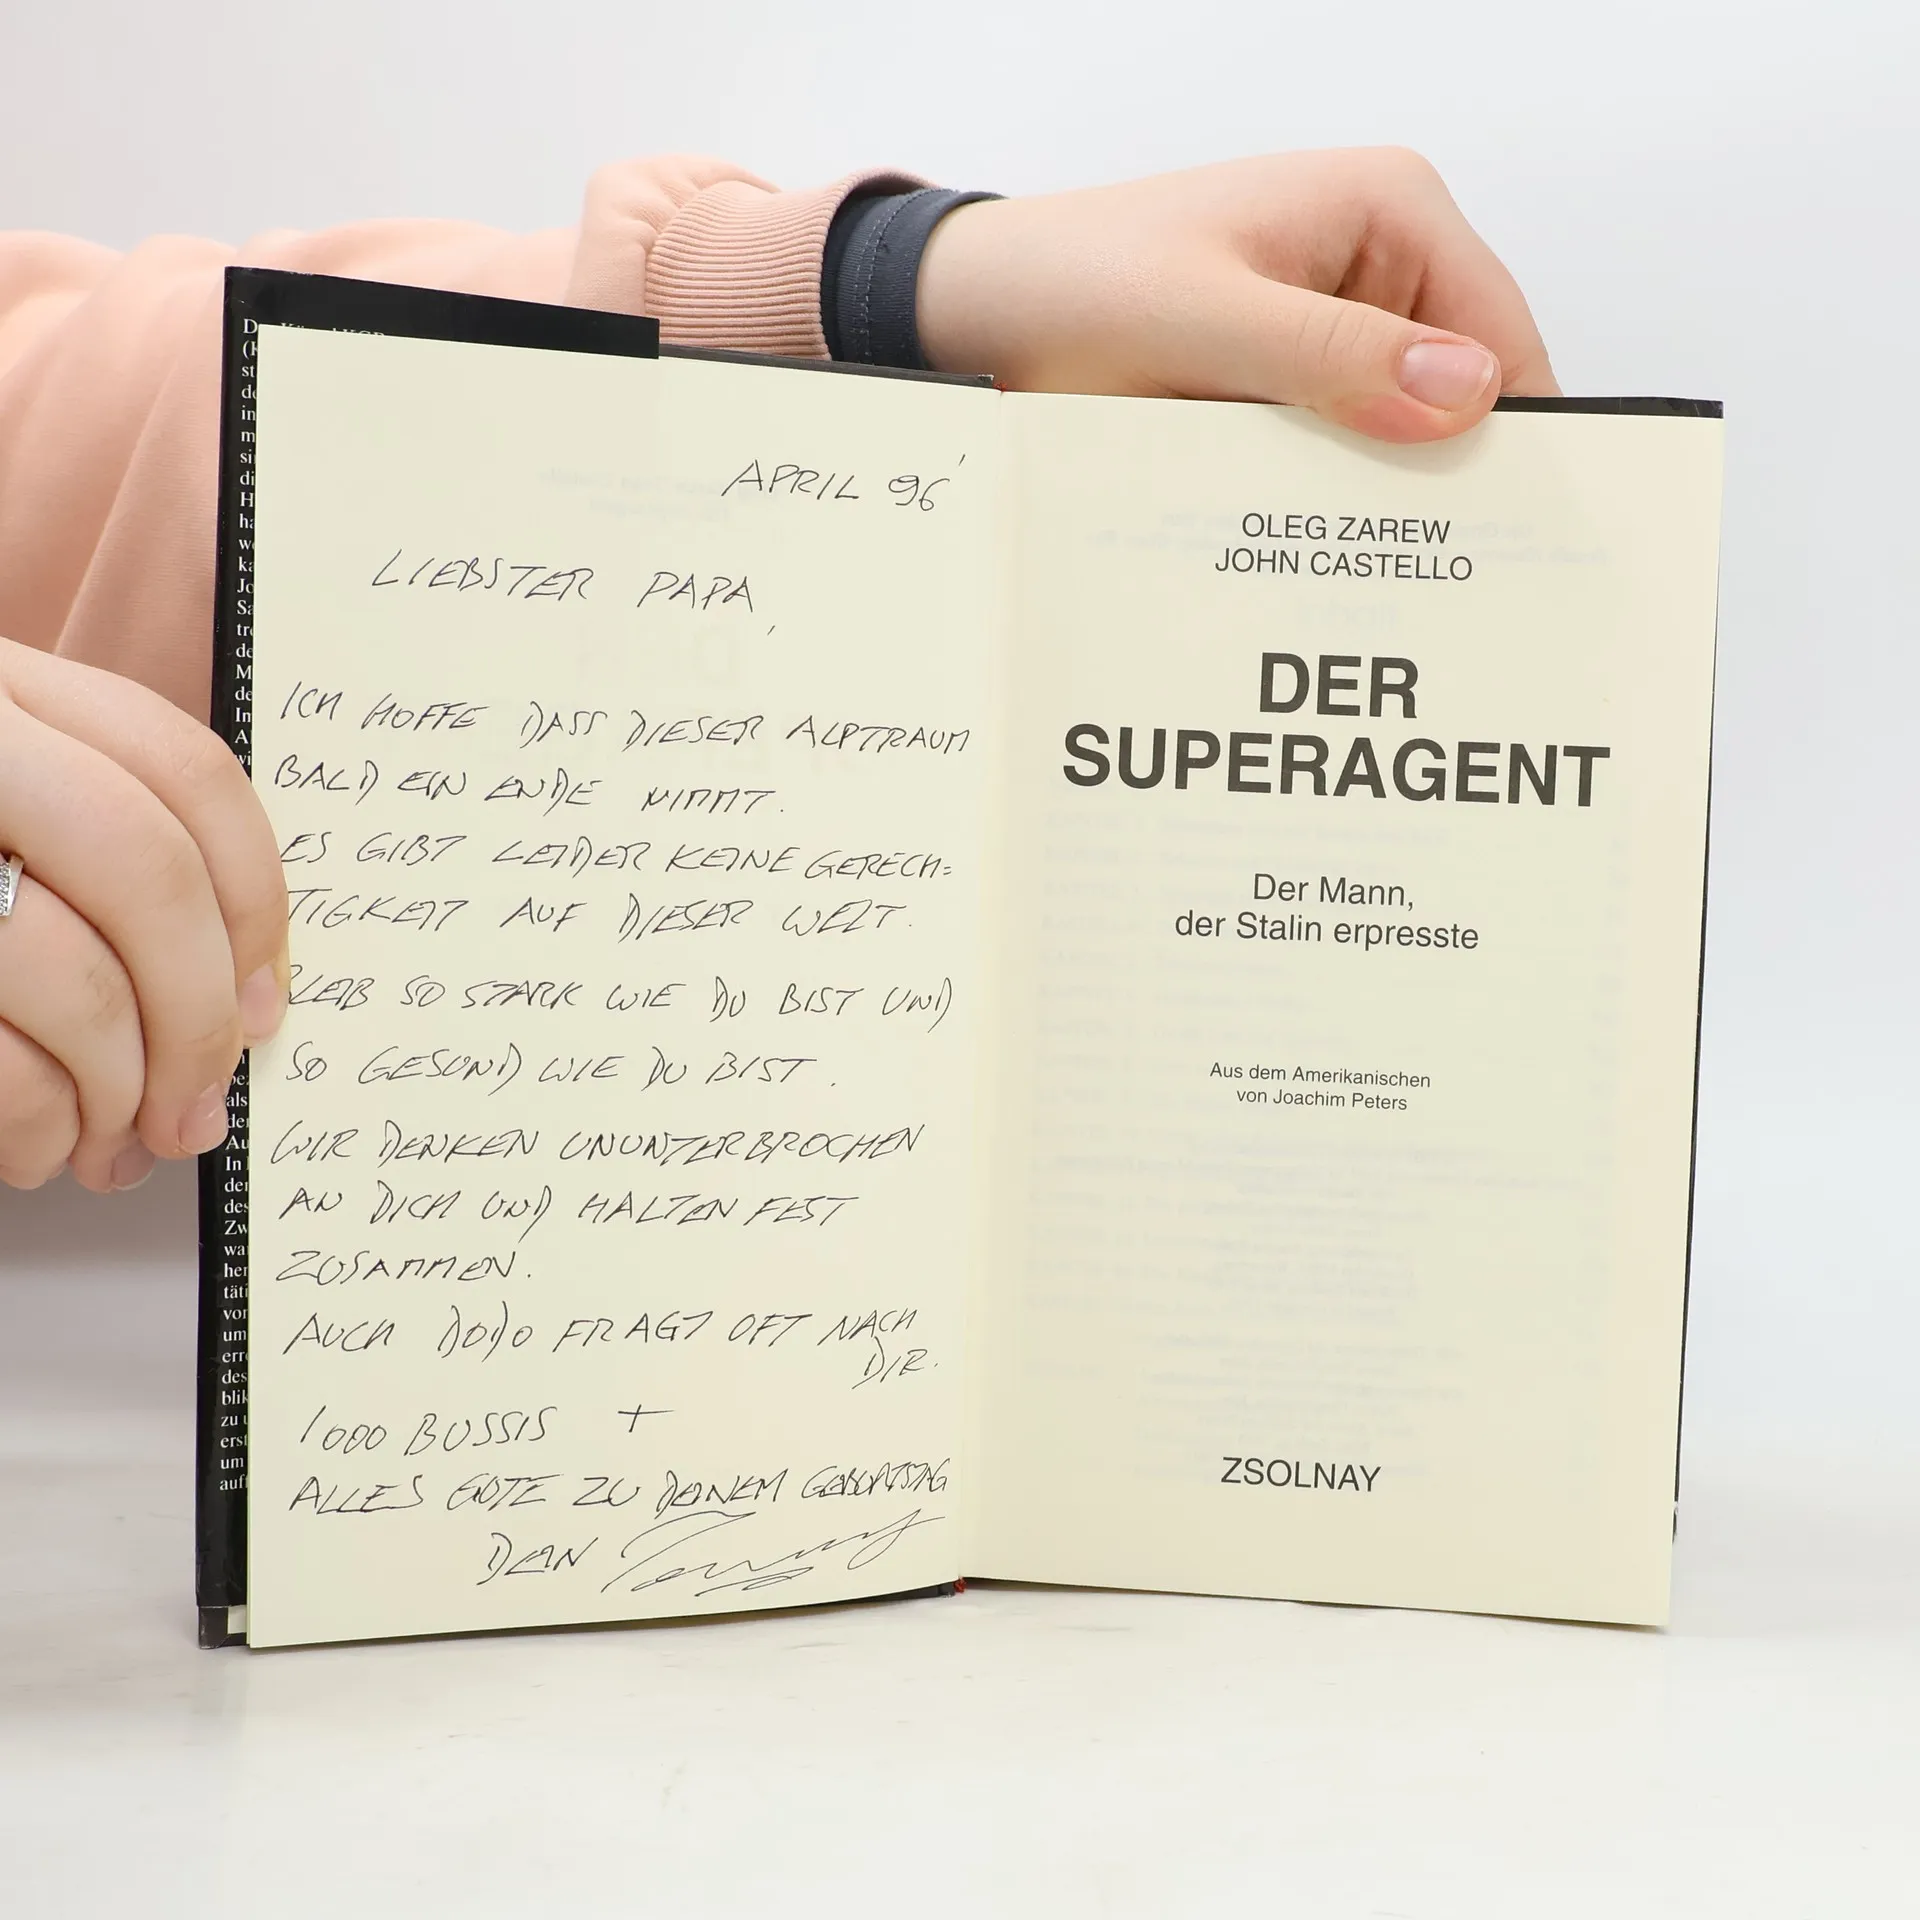 APRIL 96'
LIEBSTER PAPA,
ICH HOFFE DASS DIESER ALPTRAUM
BALD EIN ENDE NIMMT.
ES GIBT LEIDER KEINE GERECH=
TIGKEIT AUF DIESER WELT.
BLEIB SO STARK WIE DU BIST UND
SO GESUND WIE DU BIST.
WIR DENKEN UNUNTERBROCHEN
AN DICH UND HALTEN FEST
ZUSAMMEN.
AUCH DODO FRAGT OFT NACH
DIR.
1000 BUSSIS +
ALLES GUTE ZU DEINEM GEBURTSTAG
DEIN
OLEG ZAREW
JOHN CASTELLO
DER
SUPERAGENT
Der Mann,
der Stalin erpresste
Aus dem Amerikanischen
von Joachim Peters
ZSOLNAY